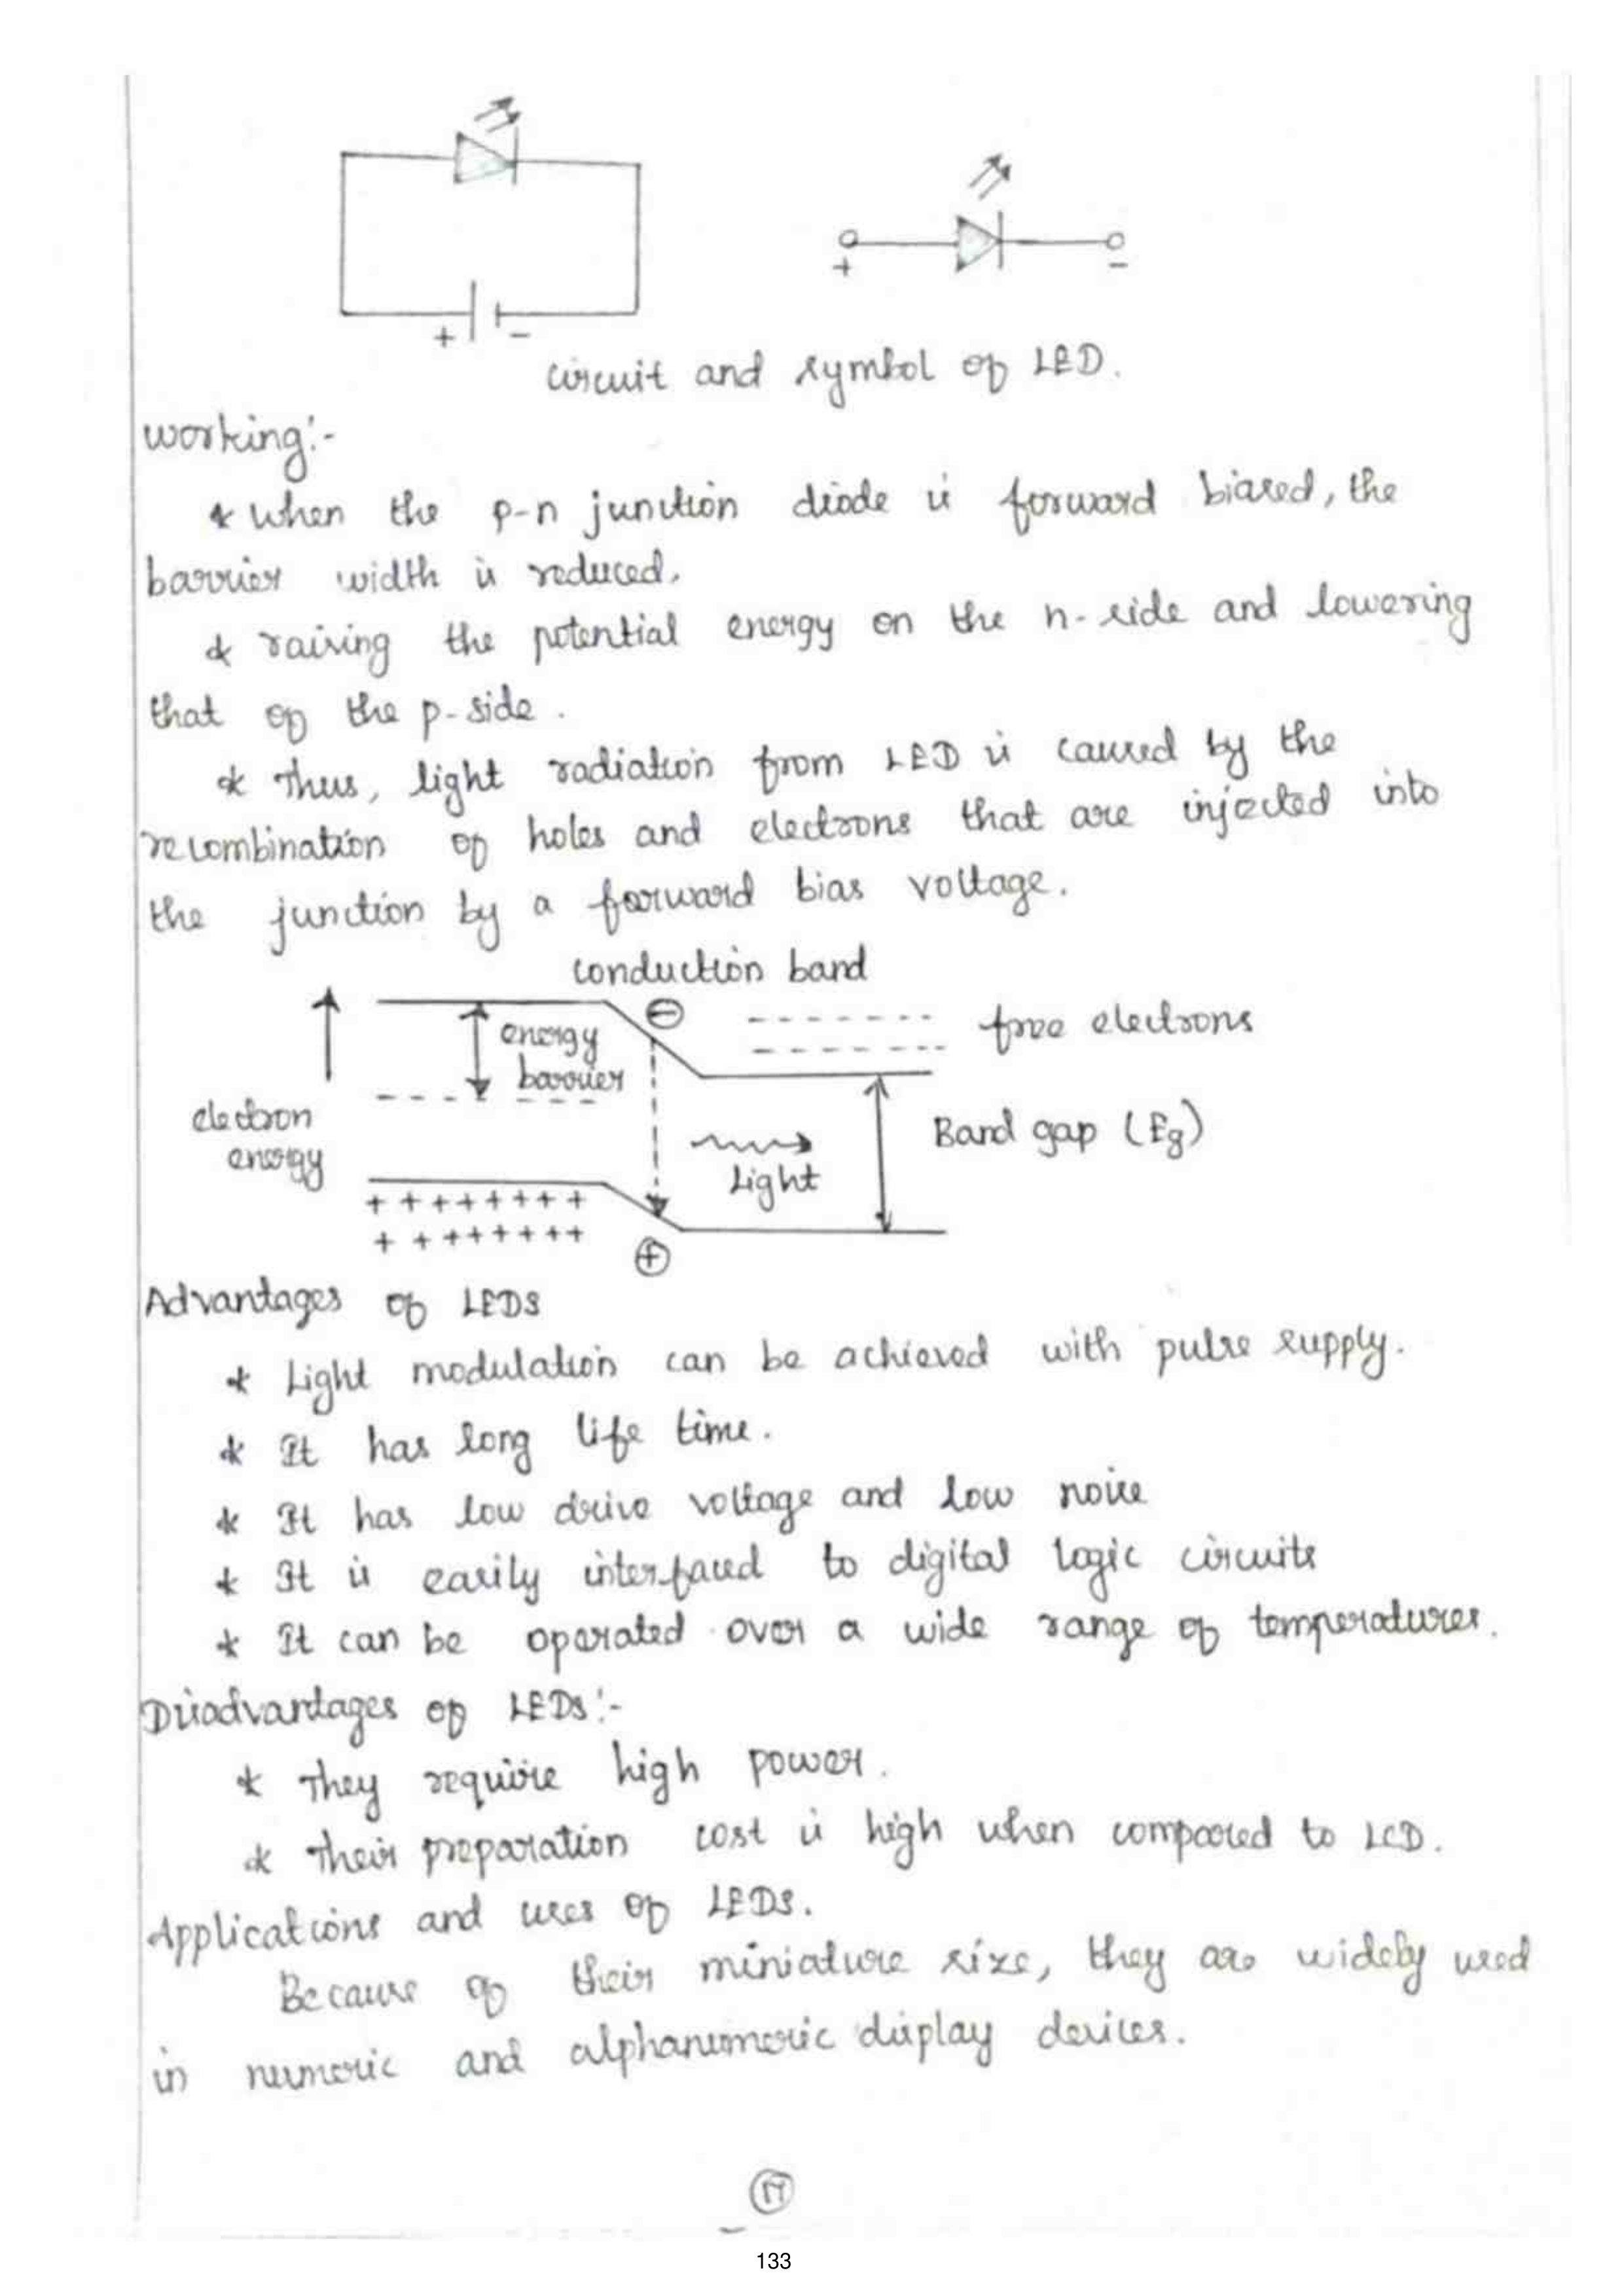 + -
+ -
circuit and symbol of LED.
Working:-
* When the p-n junction diode is forward biased, the
barrier width is reduced.
* raising the potential energy on the n-side and lowering
that of the p-side.
* Thus, light radiation from LED is caused by the
recombination of holes and electrons that are injected into
the junction by a forward bias voltage.
conduction band
energy
barrier
free electrons
electron
energy
Band gap (Eg)
Light
+ + + + + + + +
+ + + + + + + +
Advantages of LEDS
* Light modulation can be achieved with pulse supply.
* It has long life time.
* It has low drive voltage and low noise
* It is easily interfaced to digital logic circuits
* It can be operated over a wide range of temperatures.
Disadvantages of LEDs:-
* They require high power.
* Their preparation cost is high when compared to LCD.
Applications and uses of LEDS.
Because of their miniature size, they are widely used
in numeric and alphanumeric display devices.
133